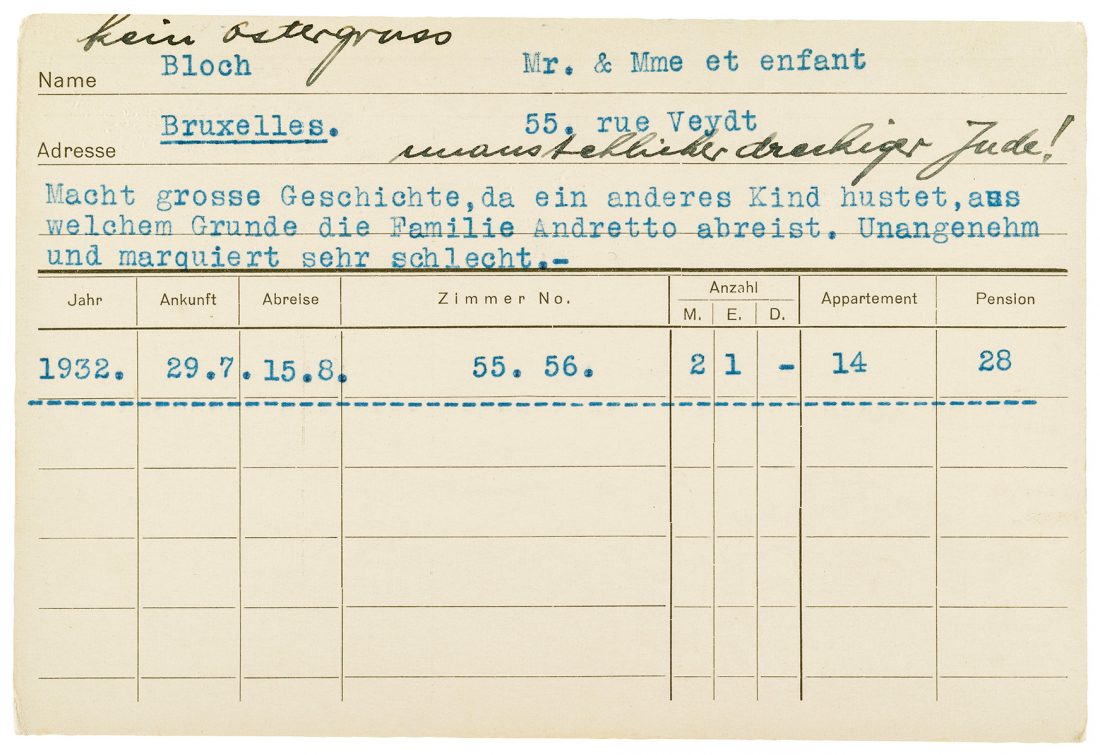 kein Ostergruss
Name Bloch Mr. & Mme et enfant
Adresse Bruxelles. 55. rue Veydt
unausstehlicher dreckiger Jude!
Macht grosse Geschichte,da ein anderes Kind hustet,aus
welchem Grunde die Familie Andretto abreist. Unangenehm
und marquiert sehr schlecht.-
Jahr Ankunft Abreise Zimmer No. Anzahl Appartement Pension
M. E. D.
1932. 29.7. 15.8. 55. 56. 2 1 - 14 28